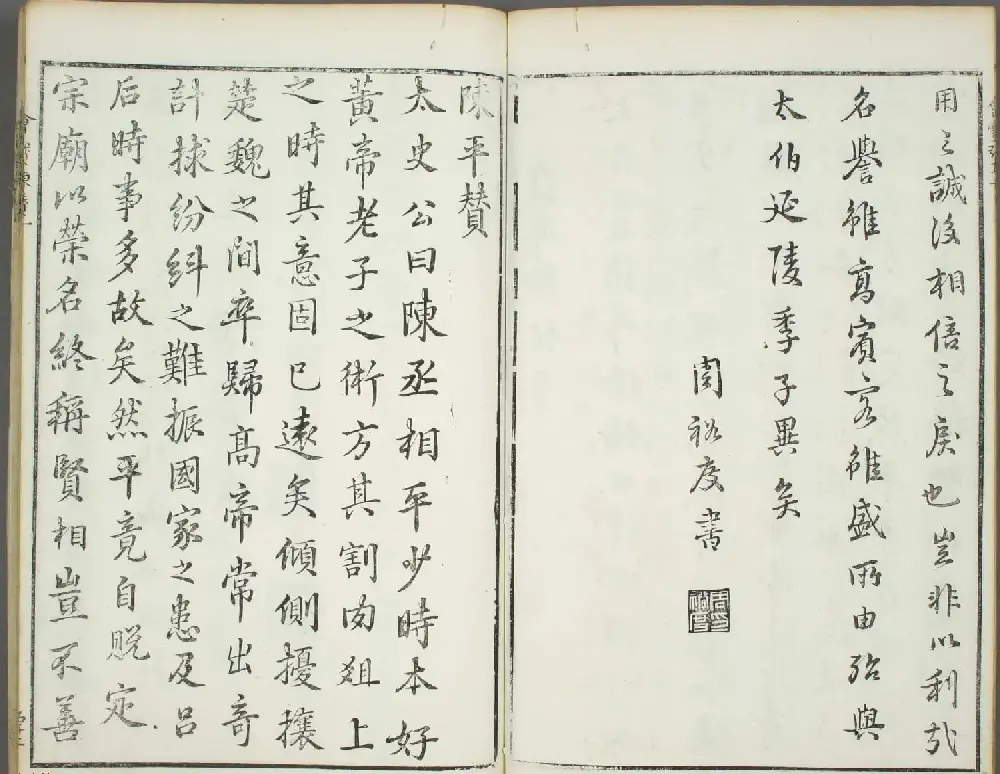 用之誠後相倍之戾也豈非以利哉
名譽雖高賓客雖盛所由殆與
太伯延陵季子異矣
周裕度書
陳平賛
太史公曰陳丞相平少時本好
黃帝老子之術方其割肉俎上
之時其意固已遠矣傾側擾攘
楚魏之間卒歸高帝常出奇
計捄紛糾之難振國家之患及呂
后時事多故矣然平竟自脫定
宗廟以榮名終稱賢相豈不善